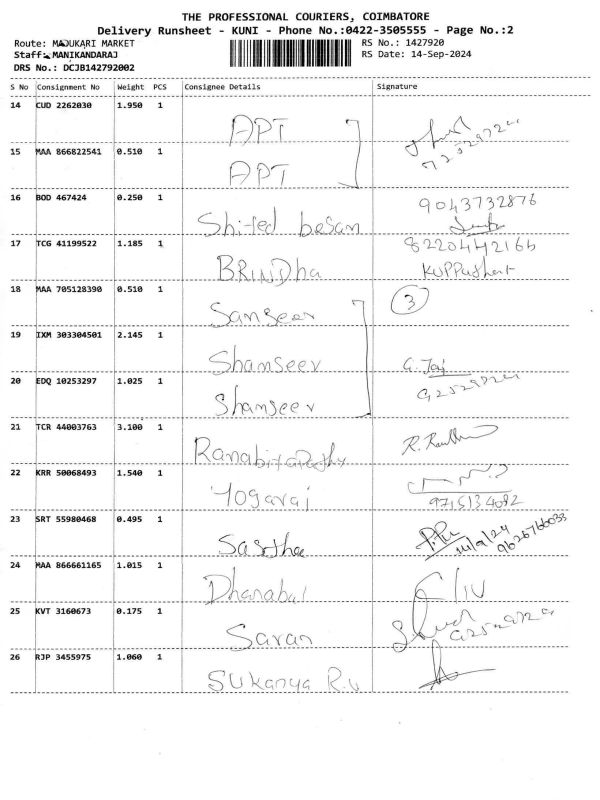 THE PROFESSIONAL COURIERS, COIMBATORE
Delivery Runsheet - KUNI - Phone No.:0422-3505555 - Page No.:2
Route: MADUKARI MARKET
RS No.: 1427920
Staff: MANIKANDARAJ
RS Date: 14-Sep-2024
DRS No.: DCJB142792002
S No Consignment No Weight PCS Consignee Details Signature
14 CUD 2262030 1.950 1
APT
15 MAA 866822541 0.510 1
APT
16 BOD 467424 0.250 1 9043732876
besan
17 TCG 41199522 1.185 1 8220442166
BRINDha
18 MAA 705128390 0.510 1 3
Sanseer
19 IXM 303304501 2.145 1
Shanseer
20 EDQ 10253297 1.025 1
Shanseer
21 TCR 44003763 3.100 1
22 KRR 50068493 1.540 1
Yogaraj 9715134082
23 SRT 55980468 0.495 1
Sastha 14/9/24 9626766033
24 MAA 866661165 1.015 1
Dhanabal
25 KVT 3160673 0.175 1
Saran
26 RJP 3455975 1.060 1
Sukanya R.v